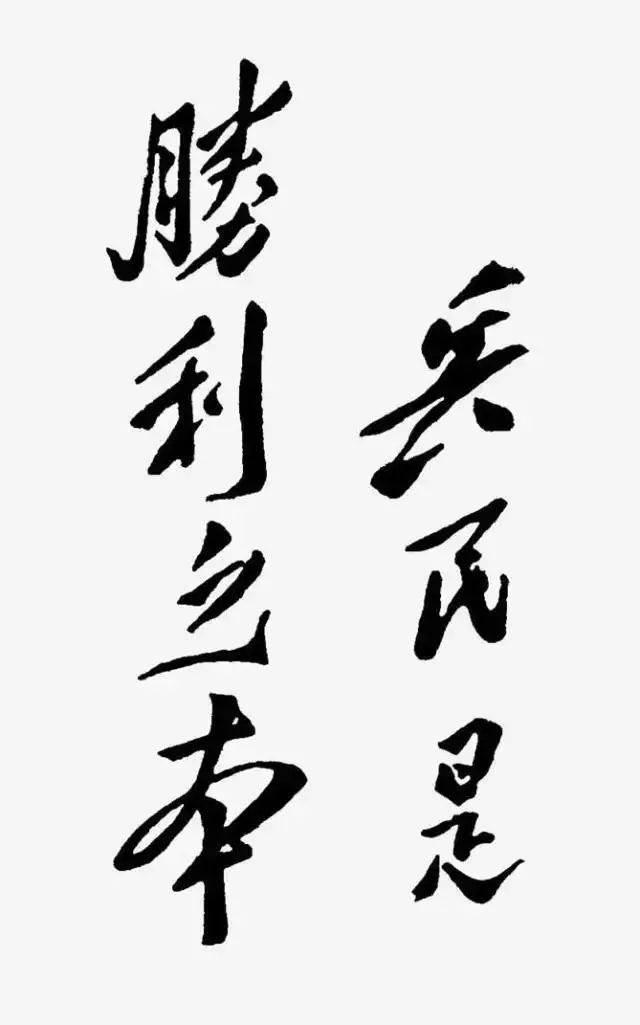 兵民是
勝利之本